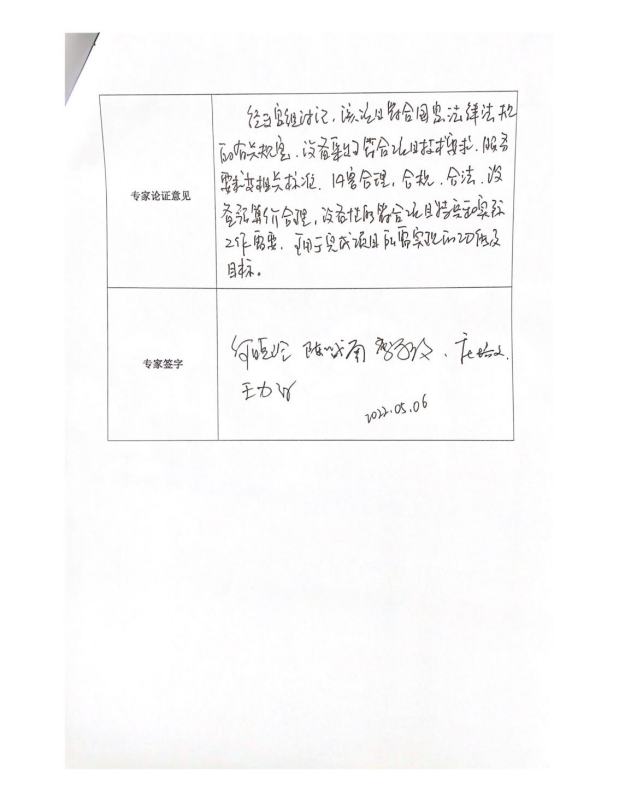 经专家组讨论,该项目符合国家法律法规
的有关规定,设备要求符合项目技术要求,服务
要求按相关标准,内容合理,合规,合法,设
备预算价合理,设备性能符合项目特定和实际
工作需要,可用于完成项目所需实现的功能及
目标。
专家论证意见
专家签字
2022.05.06